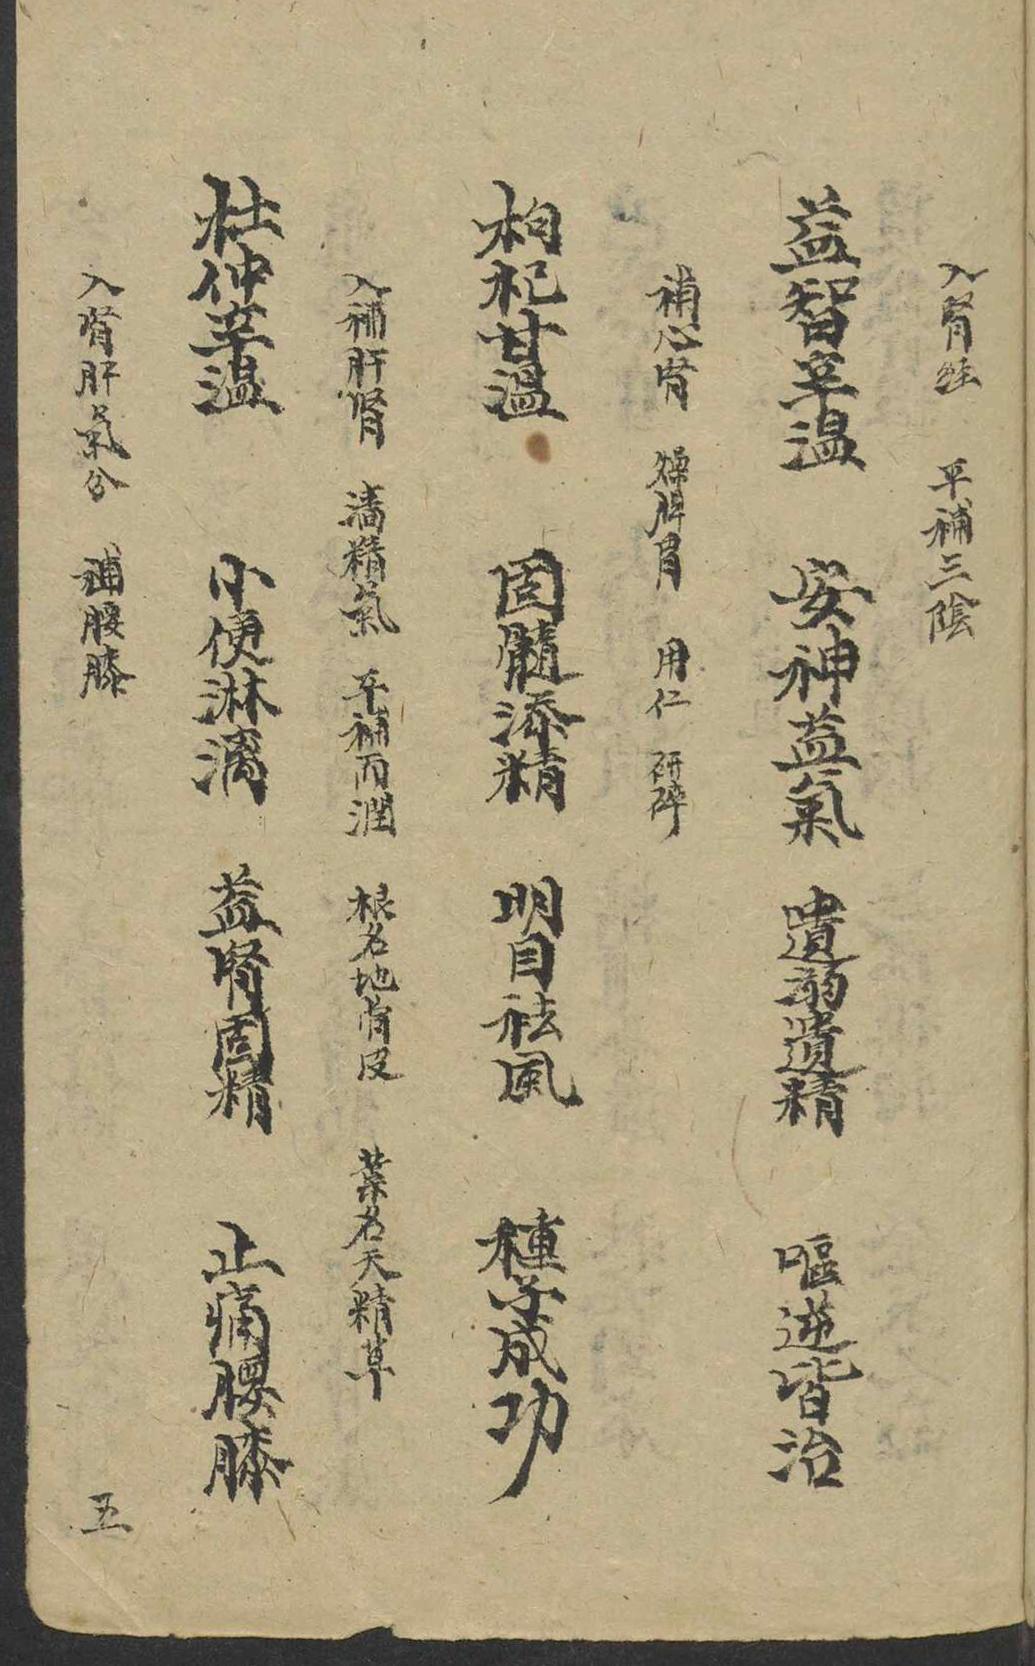 入腎經 平補三陰
益智辛温 安神益氣 遺溺遺精 嘔逆皆治
補心腎 燥脾胃 用仁 研碎
枸杞甘溫 固髓添精 明目祛風 種子成功
入補肝腎 清精氣 平補而潤 根名地骨皮 葉名天精草
杜仲辛温 小便淋漓 益腎固精 止痛腰膝
入腎肝氣分 補腰膝
五